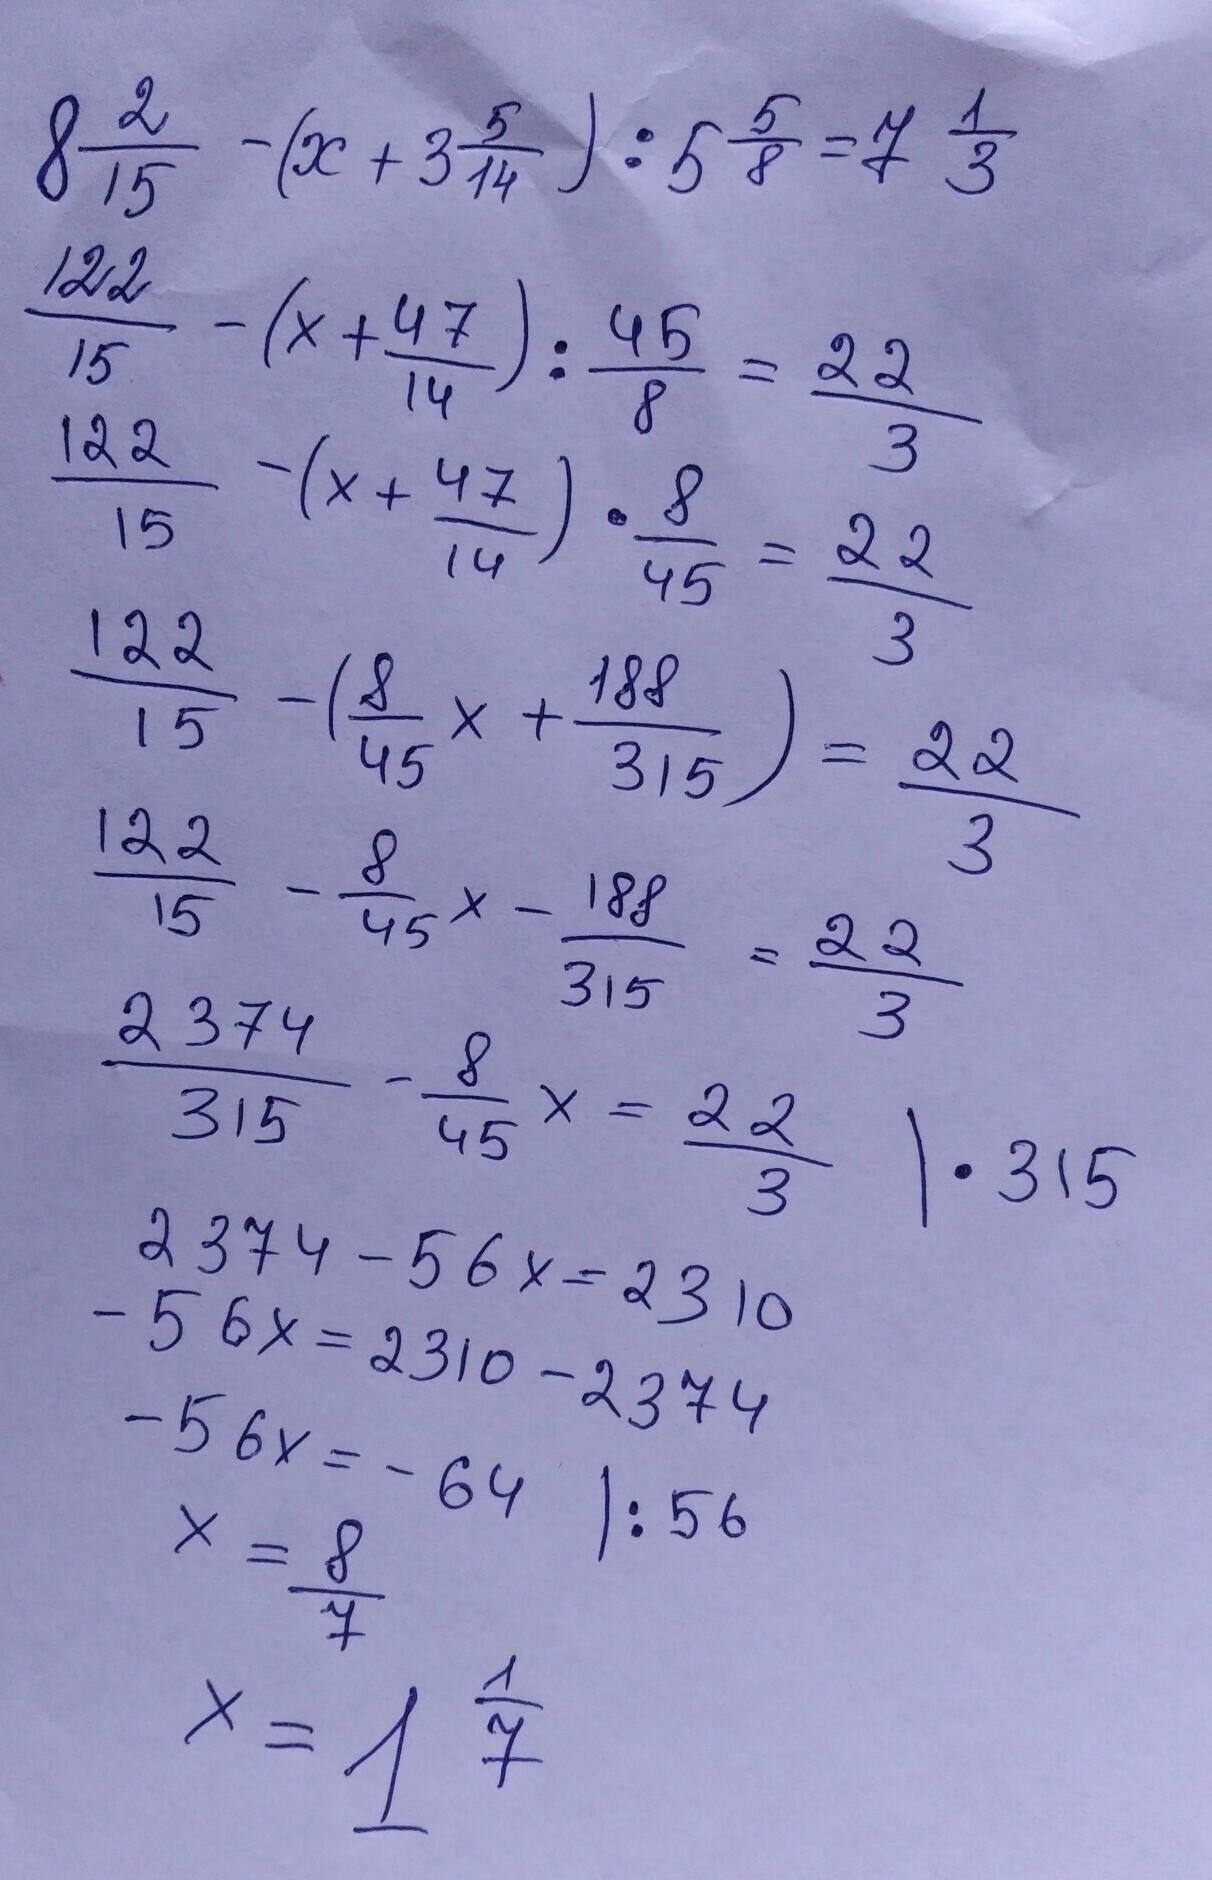 8 2/15 - (x + 3 5/14) : 5 5/8 = 7 1/3
122/15 - (x + 47/14) : 45/8 = 22/3
122/15 - (x + 47/14) · 8/45 = 22/3
122/15 - (8/45 x + 188/315) = 22/3
122/15 - 8/45 x - 188/315 = 22/3
2374/315 - 8/45 x = 22/3 | · 315
2374 - 56x = 2310
-56x = 2310 - 2374
-56x = -64 | : 56
x = 8/7
x = 1 1/7